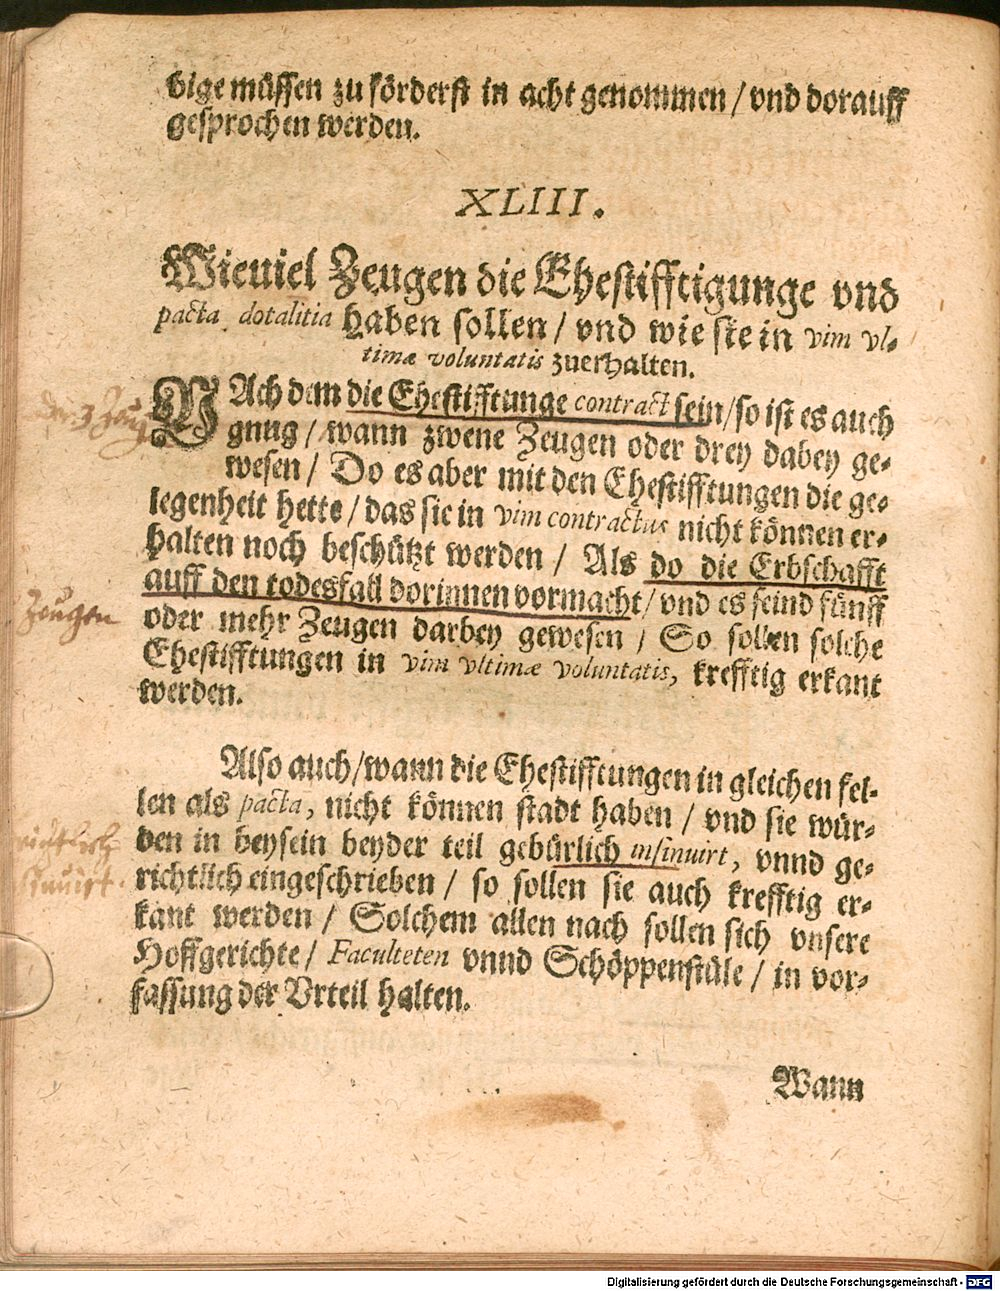 bige müssen zu förderst in acht genommen / vnd dorauff
gesprochen werden.
XLIII.
Wieuiel Zeugen die Ehestifftigunge vnd
pacta dotalitia haben sollen / vnd wie sie in vim vl-
timæ voluntatis zuerhalten.
NAch dem die Ehestifftunge contract sein / so ist es auch
gnug / wann zwene Zeugen oder drey dabey ge-
wesen / Do es aber mit den Ehestifftungen die ge-
legenheit hette / das sie in vim contractus nicht können er-
halten noch beschützt werden / Als do die Erbschafft
auff den todesfall dorinnen vormacht / vnd es seind fünff
oder mehr Zeugen darbey gewesen / So sollen solche
Ehestifftungen in vim vltimæ voluntatis, krefftig erkant
werden.
Also auch / wann die Ehestifftungen in gleichen fel-
len als pacta, nicht können stadt haben / vnd sie wür-
den in beysein beyder teil gebürlich insinuirt, vnnd ge-
richtlich eingeschrieben / so sollen sie auch krefftig er-
kant werden / Solchem allen nach sollen sich vnsere
Hoffgerichte / Faculteten vnnd Schöppenstüle / in vor-
fassung der Vrteil halten.
Wann
3 Zeug
Zeugen
Digitalisierung gefördert durch die Deutsche Forschungsgemeinschaft - DFG